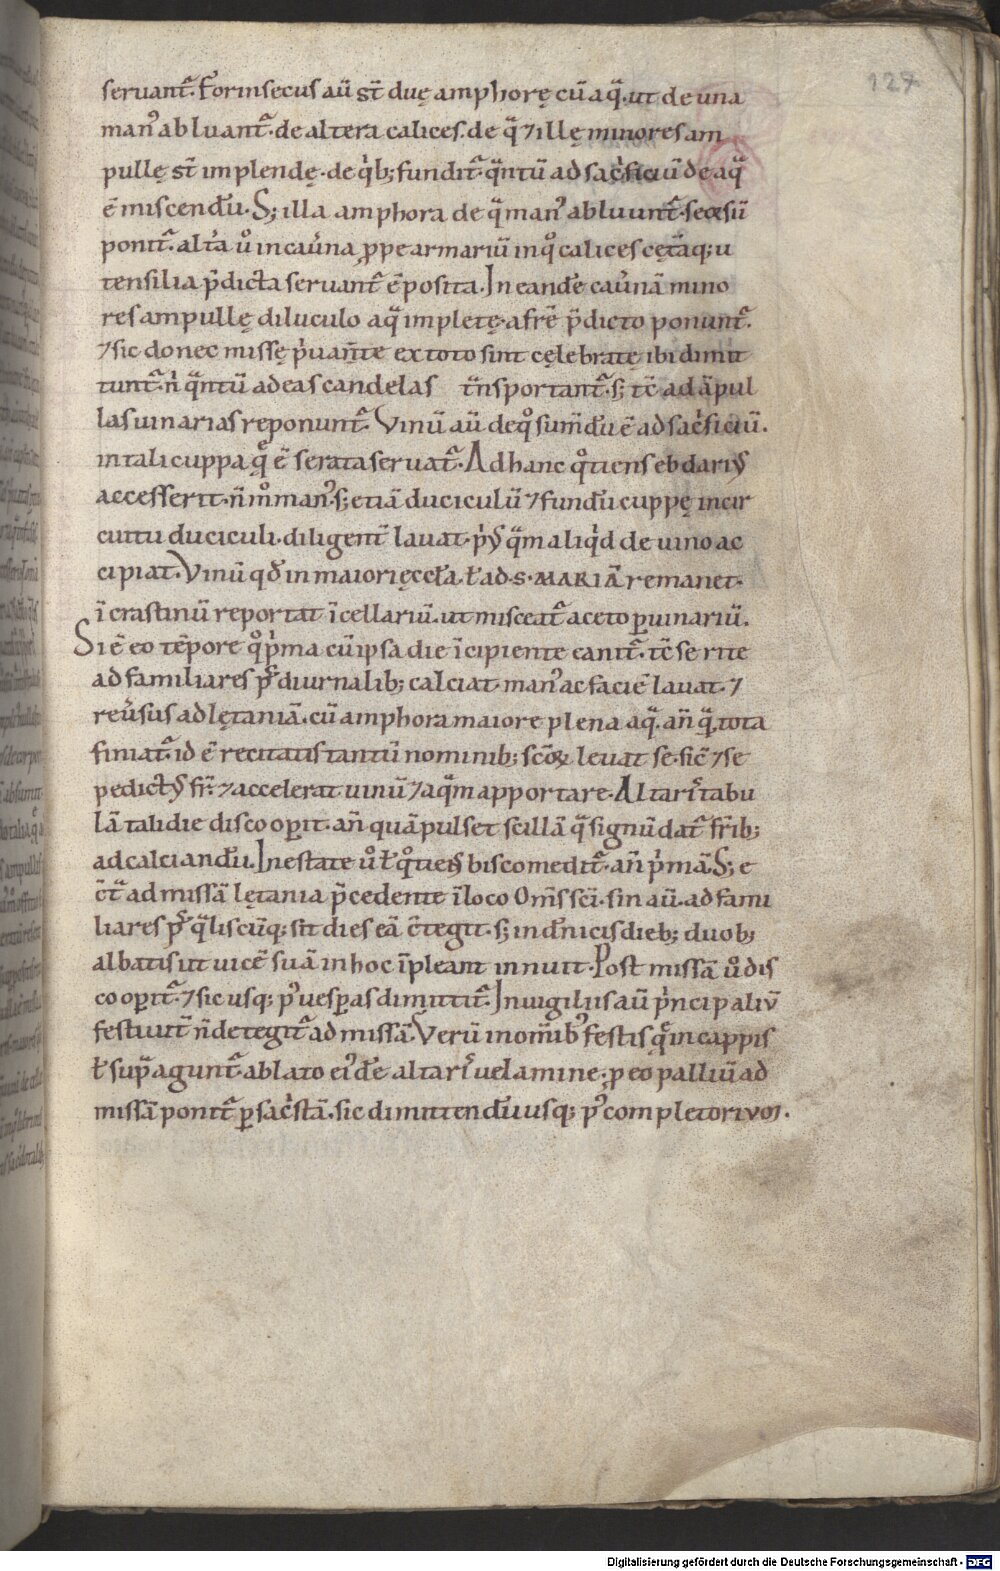 127
seruant᷑. Forinsecus aū st̄ duę amphorę cū aq̄. ut de una
man᷒ abluant᷑. de altera calices. de q̄ ⁊ illę minores am
pullę st̄ implendę. de q͛b; fundit᷑ q̄ntū ad sac͛ficiū de aq̄
ē miscendū. S; illa amphora de q̄ man᷒ abluunt᷑. secesū
ponit᷑. alt͛a u͛o in cau͛na prope armariū in q̊ calices cet͛aq; u
tensilia p̄dicta seruant᷑ ē posita. In eand̄e cau͛nā mino
res ampullę diluculo aq̄ impletę. a fr̄e p̄dicto ponunt᷑.
⁊ sic donec missę p͛uan̄te ex toto sint cęlebratę ibi dimit
tunt᷑. n͛ q̄ntū ad eas candelas t̄nsportant᷑. s; tc̄ ad āpul
las uinarias reponunt᷑. Vinū aū de q̊ sum̄dū ē ad sac͛ficiū.
in tali cuppa q̄ ē serata seruat᷑. Ad hanc q̊tiens ebdariꝰ
accesserit. n̄ m̊ man᷒. s; etiā duciculū ⁊ fundū cuppę in cir
cuitu duciculi. diligent̄ lauat. p͛ꝰ q̄m aliq͛d de uino ac
cipiat. Vinū qd̄ in maiori ęccła. ł ad. S. MARIĀ remanet.
ī crastinū reportat ī cellariū. ut misceat᷑ aceto ꝑ uinariū.
Si ē eo tēpore q̊ p͛ma cū ipsa die īcipiente canit᷑. tc̄ se rite
ad familiares ps̄ diurnalib; calciat. man᷒ ac faciē lauat. ⁊
reu͛sus ad lętaniā. cū amphora maiore plena aq̄. an̄ q̄ tota
finiat᷑. id ē recitatis tantū nominib; scōꝝ leuat se. sic̄ ⁊ se
pedictꝰ fr̄. ⁊ accelerat uinū ⁊ aq̄m apportare. Altar͛ tabu
lā tali die discooꝑit. an̄ quā pulset scillā q̄ signū dat᷑ fr̄ib;
ad calciandū. In estate u͛o ł q̊tiens bis comedit᷑. an̄ p͛mā. S; e
c̄t͛a ad missā lętania p̄cedente ī loco Om̄s sc̄i. sin aū. ad fami
liares ps̄ q̄liscūq; sit dies eā c̄tegit. s; in dn̄icis dieb; duob;
albatis ut uicē suā in hoc īpleant innuit. Post missā u͛o dis
cooꝑit᷑. ⁊ sic usq; p᷒ uesꝑas dimittit᷑. In uigiliis aū p͛ncipaliū
festiuit̄ n̄ detegit᷑ ad missā. Verū in om̄ib᷒ festis q̄ in cappis
ł sup̄ agunt᷑. ablato ei᷒d̄e altar͛ uelamine. pro eo palliū ad
missā ponit᷑ ꝑ sac͛stā. sic dimittendū usq; p᷒ completorium.
Digitalisierung gefördert durch die Deutsche Forschungsgemeinschaft - DFG